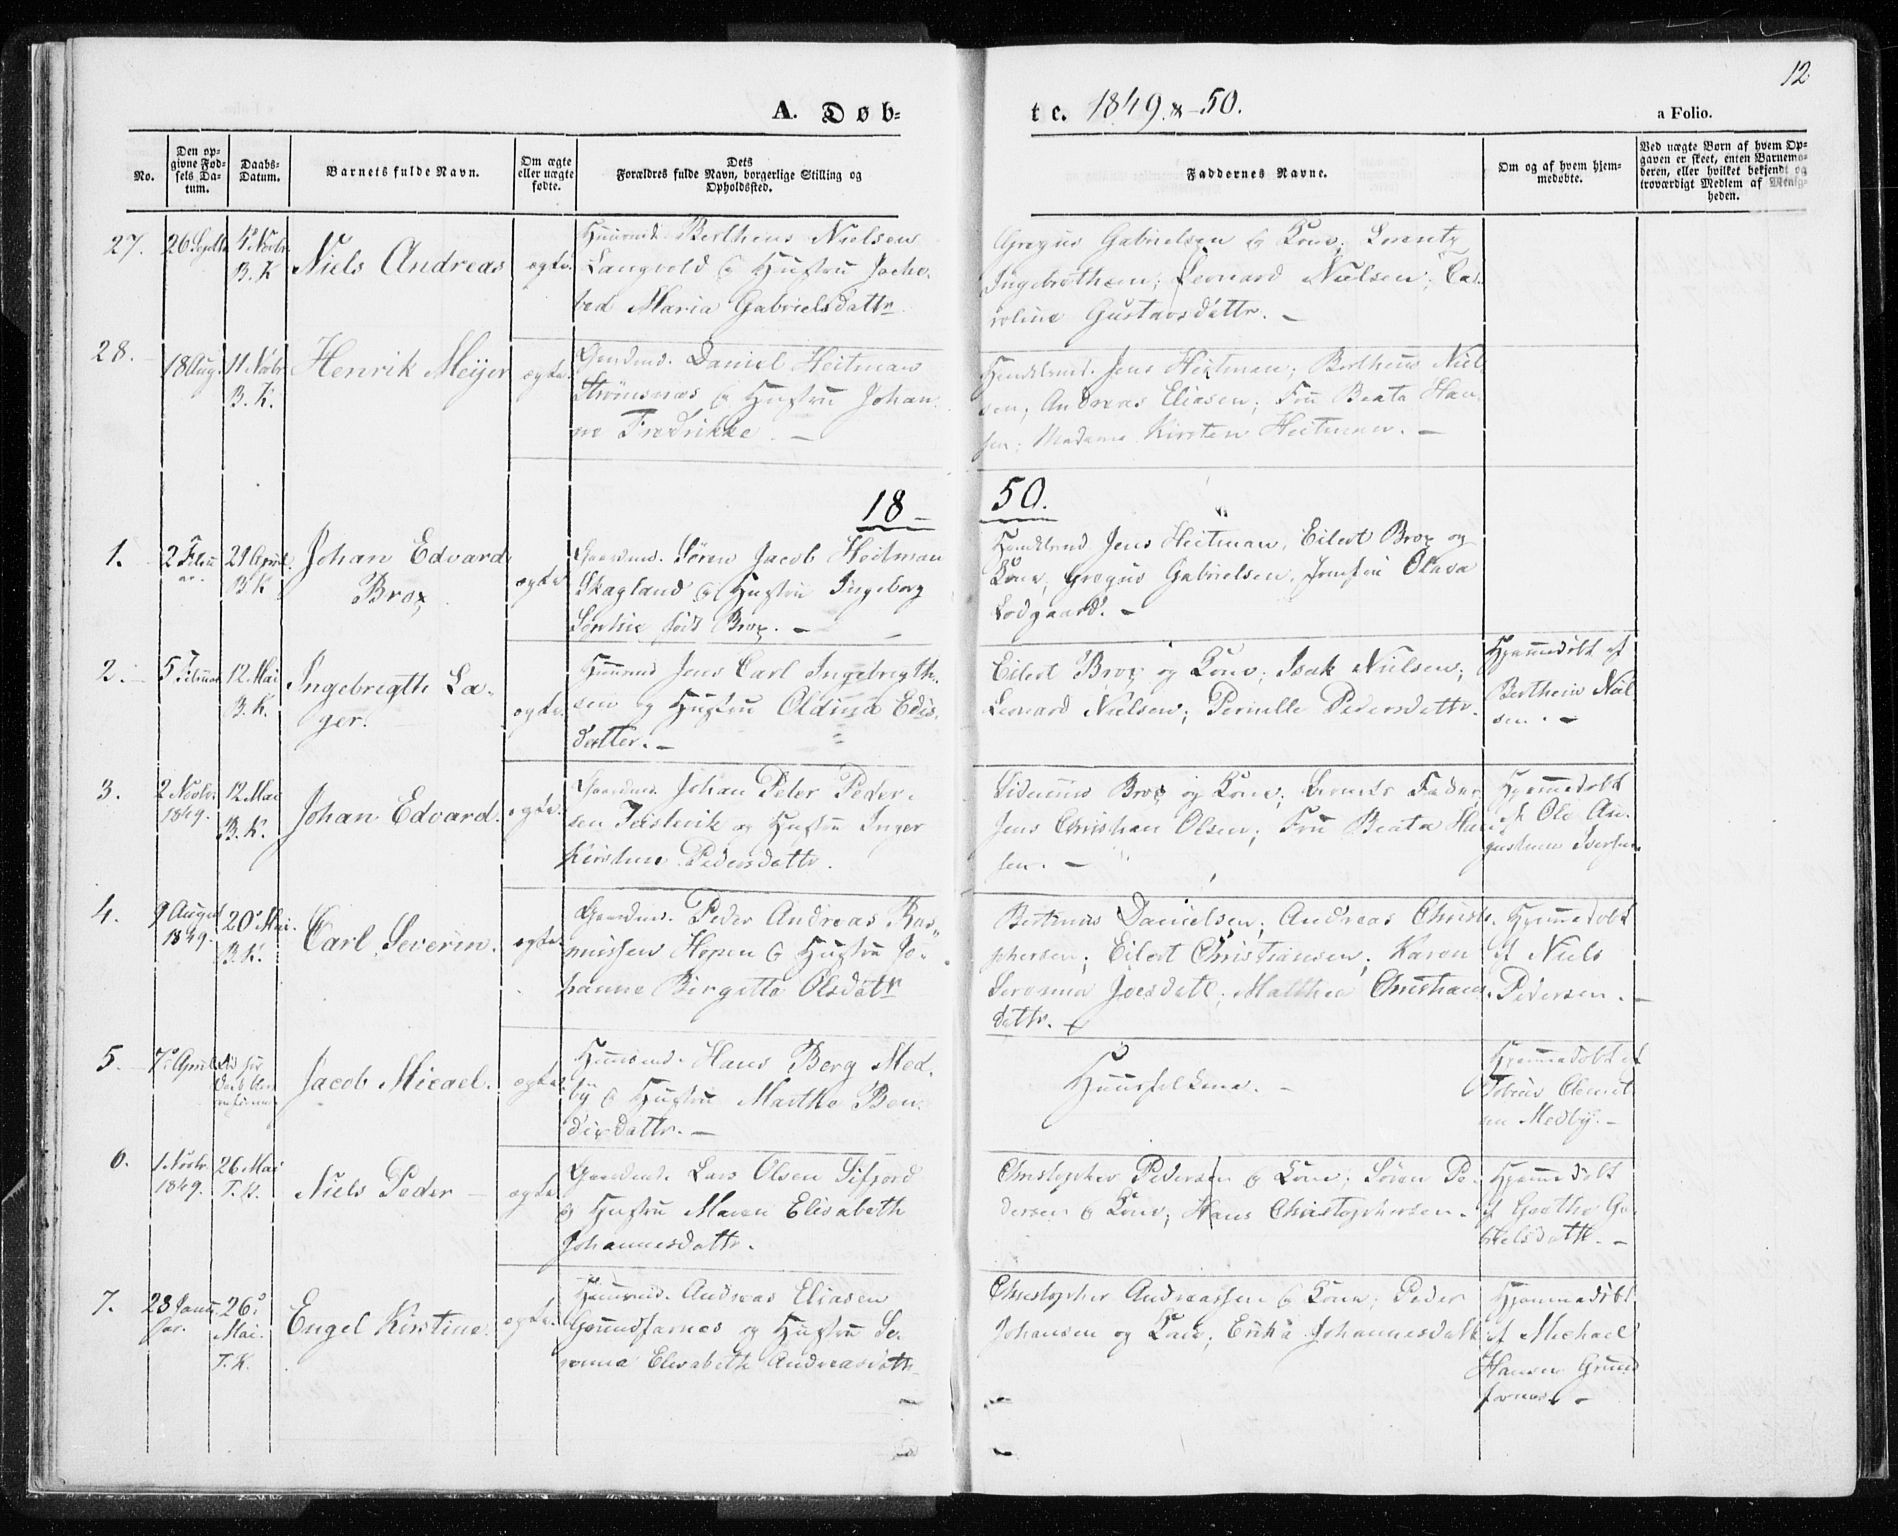 12
A. Døb-
t e. 1849 & -50.
a Folio.
No.
Den op-
givne Fød-
sels Da-
tum.
Daabs-
Datum.
Barnets fulde Navn.
Om ægte
eller uægte
fødte.
Dets
Forældres fulde Navn, borgerlige Stilling og
Opholdssted.
Faddernes Navne.
Om og af hvem hjem-
medøbte.
Ved uægte Børn af hvem Op-
gaven er skeet, enten Barnemo-
deren, eller hvilket bekjendt og
troværdigt Medlem af Menig-
heden.
27.
26 Septbr
B. K
Niels Andreas
ægte.
Bertheus Nielsen
Langvold & Hustru Joche-
bed Maria Gabrielsdattr
Gregus Gabrielsen & Kone; Lorentz
Ingebrethsen; Leonard Nielsen; Ca-
roline Gustavsdattr. -
28.
18 Aug.
11 Novbr
B. K.
Henrik Meijer
ægte.
Gaardmd. Daniel Heitman
Strømsnæs & Hustru Johan-
ne Fredrikke. -
Handelsmd. Jens Heitman; Bertheus Niel-
sen; Andreas Eliasen; Fru Beata Han-
sen; Madame Kirsten Heitman. -
18 -
50.
1.
2 Febru
ar.
21 April.
B K
Johan Edvard
Brox
ægte
Gaardmd. Søren Jacob Heitman
Skagland & Hustru Ingeborg
Sophie født Brox. -
Handelsmd Jens Heitman, Eilert Brox og
Kone, Gregus Gabrielsen, Jomfru Olava
Lodgaard. -
2.
5 Februar
12 Mai
B. K.
Ingebregth La-
ger.
ægte.
Huusmd Jens Carl Ingebregth-
sen og Hustru Oldina Edis-
datter. -
Eilert Brox og Kone; Isak Nielsen;
Leonard Nielsen; Pernille Pedersdattr.
Hjemmedøbt af
Bertheus Niel-
sen. -
3.
2 Novbr.
1849.
12 Mai
B. K.
Johan Edvard.
ægte.
Gaardmd. Johan Peter Peder-
sen og Hustru Inger
Kirstine Pedersdattr.
Brox og Kone; Barnets Fader,
Jens Christian Olsen; Fru Beata Han-
sen. -
Hjemmedøbt
af Ole Au-
gustinus Iversen
4.
9 August
1849.
20 Mai.
B. K.
Carl Severin.
ægte.
Gaardmd. Peder Andreas Ras-
mussen Hopen & Hustru Jo-
hanna Birgitte Olsdatr
Danielsen; Andreas Christo-
phersen; Eilert Christiansen; Karen
Joesdatt; Malthea Christians-
dattr.
Hjemmedøbt
af Niels
Pedersen. -
5.
7 April
Jacob Micael.
ægte.
Huusmd. Hans Berg Med-
by & Hustru Marthe Ben-
dixdattr. -
Huusfolkene. -
Hjemmedøbt af
Tobias Clemet-
sen Medby. -
6.
1 Novbr.
1849.
26 Mai
T. K.
Niels Peder -
ægte
Gaardmd. Lars Olsen Sifjord
& Hustru Maren Elisabeth
Johannesdattr.
Christopher Pedersen & Kone; Søren Pe-
dersen & Kone; Hans Christophersen.
Hjemmedøbt
af Goethe
7.
23 Janu-
ar.
26
Mai.
T. K.
Engel Kirstine.
ægte.
Huusmd. Andreas Eliasen
Grundfarnes og Hustru Se-
rianna Elisabeth Andreasdattr.
Christopher Andreassen & Kone; Peder
Johansen og Kone; Erika Johannesdatt
Hjemmedøbt
af Michael
Hansen Grund-
farnes. -